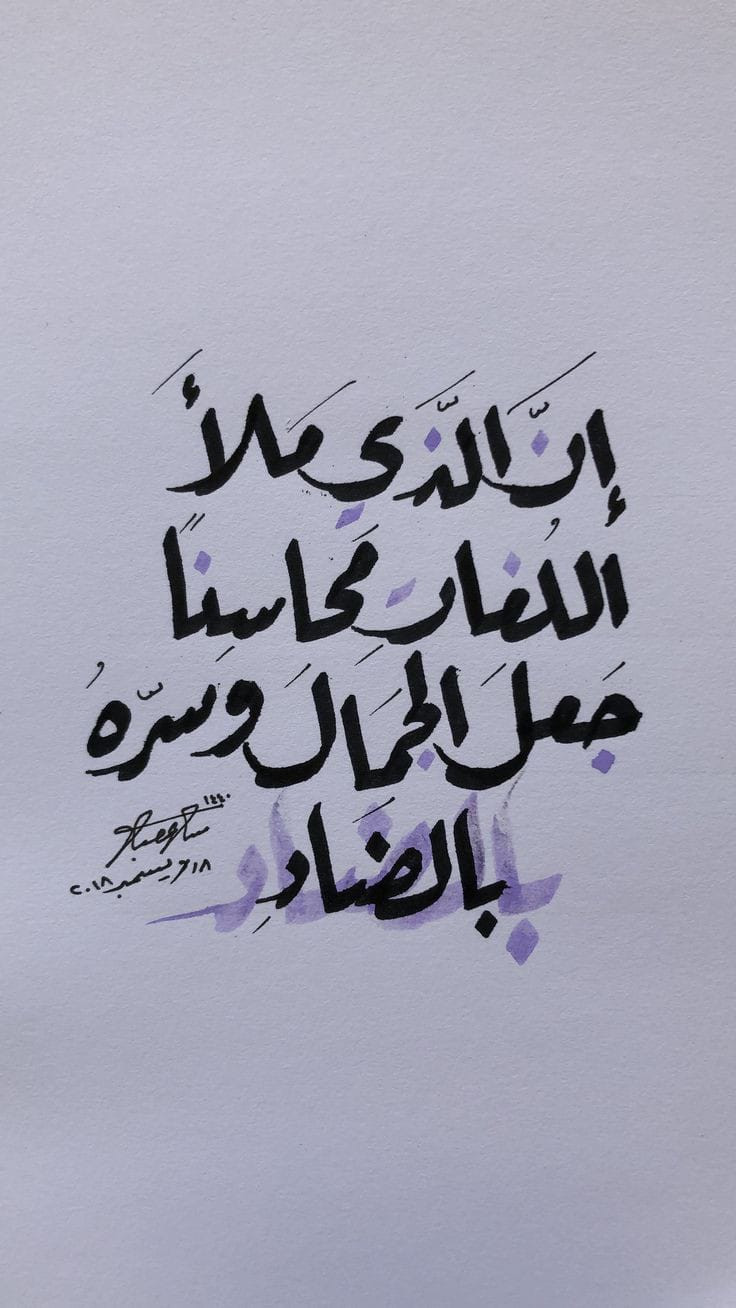 إنَّ الَّذي مَلأَ
اللُغات مَحاسِناً
جَعلَ الجَمَالَ وَسرّهُ
بالضَادِ
١٤٤٠
١٨ ديسمبر ٢٠١٨